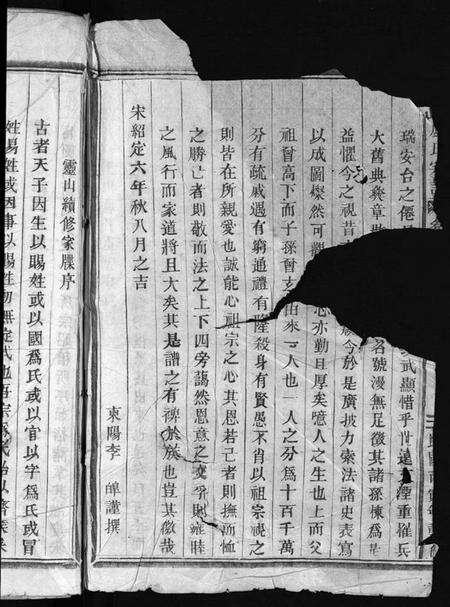 瑞安台之僊
武顯惜乎世遠
湮重罹兵
大舊典彛章
名號漫無足徵其諸孫棟爲
益懼今之視昔
今於是廣披力索法諸史表寫
以成圖燦然可觀
心亦勤且厚矣噫人之生也上而父
祖曾高下而子孫曾玄
由來一人也一人之分爲十百千萬
分有疏戚遇有窮通禮有隆殺身有賢愚不肖以祖宗視之
則皆在所親愛也誠能心祖宗之心其恩若己者則撫而恤
之勝己者則敬而法之上下四旁藹然恩意之交孚則雍睦
之風行而家道將且大矣其是譜之有裨於族也豈其微哉
宋紹定六年秋八月之吉
東陽李 皥謹撰
靈山續修家牒序
古者天子因生以賜姓或以國爲氏或以官以字爲氏或冒
姓易姓或因事以賜姓初無定式也吾宗